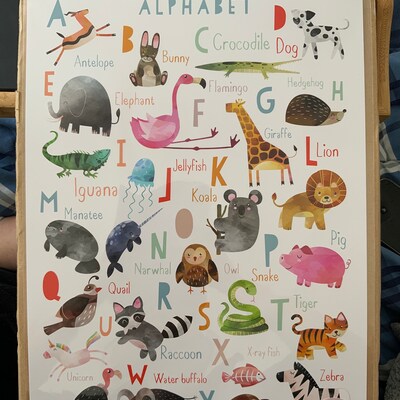 ALPHABET
A
Antelope
B
Bunny
C
Crocodile
D
Dog
E
Elephant
F
Flamingo
G
Giraffe
H
Hedgehog
I
Iguana
J
Jellyfish
K
Koala
L
Lion
M
Manatee
N
Narwhal
O
Owl
P
Pig
Q
Quail
R
Raccoon
S
Snake
T
Tiger
U
Unicorn
W
Water buffalo
X
X-ray fish
Y
Zebra